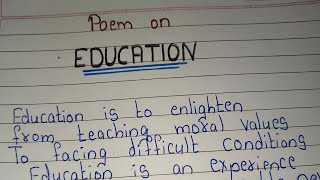 Poem on
EDUCATION
Education is to enlighten
from teaching moral values
To facing difficult conditions
Education is an experience